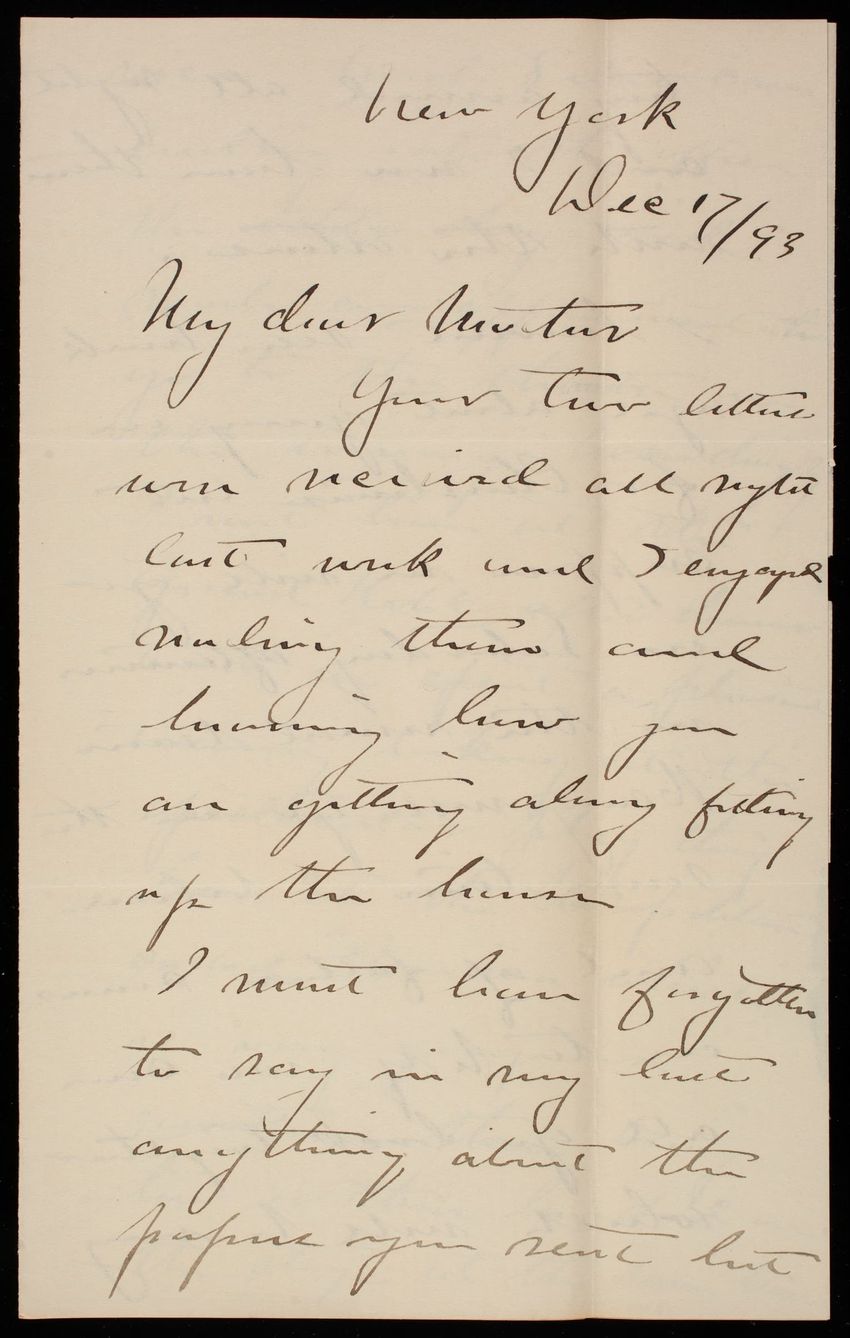 New York
Dec 17/93
My dear Mother
Your two letters
were received all right
last week and I enjoyed
reading them and
learning how you
are getting along fitting
up the house
I must have forgotten
to say in my last
anything about the
papers you sent but